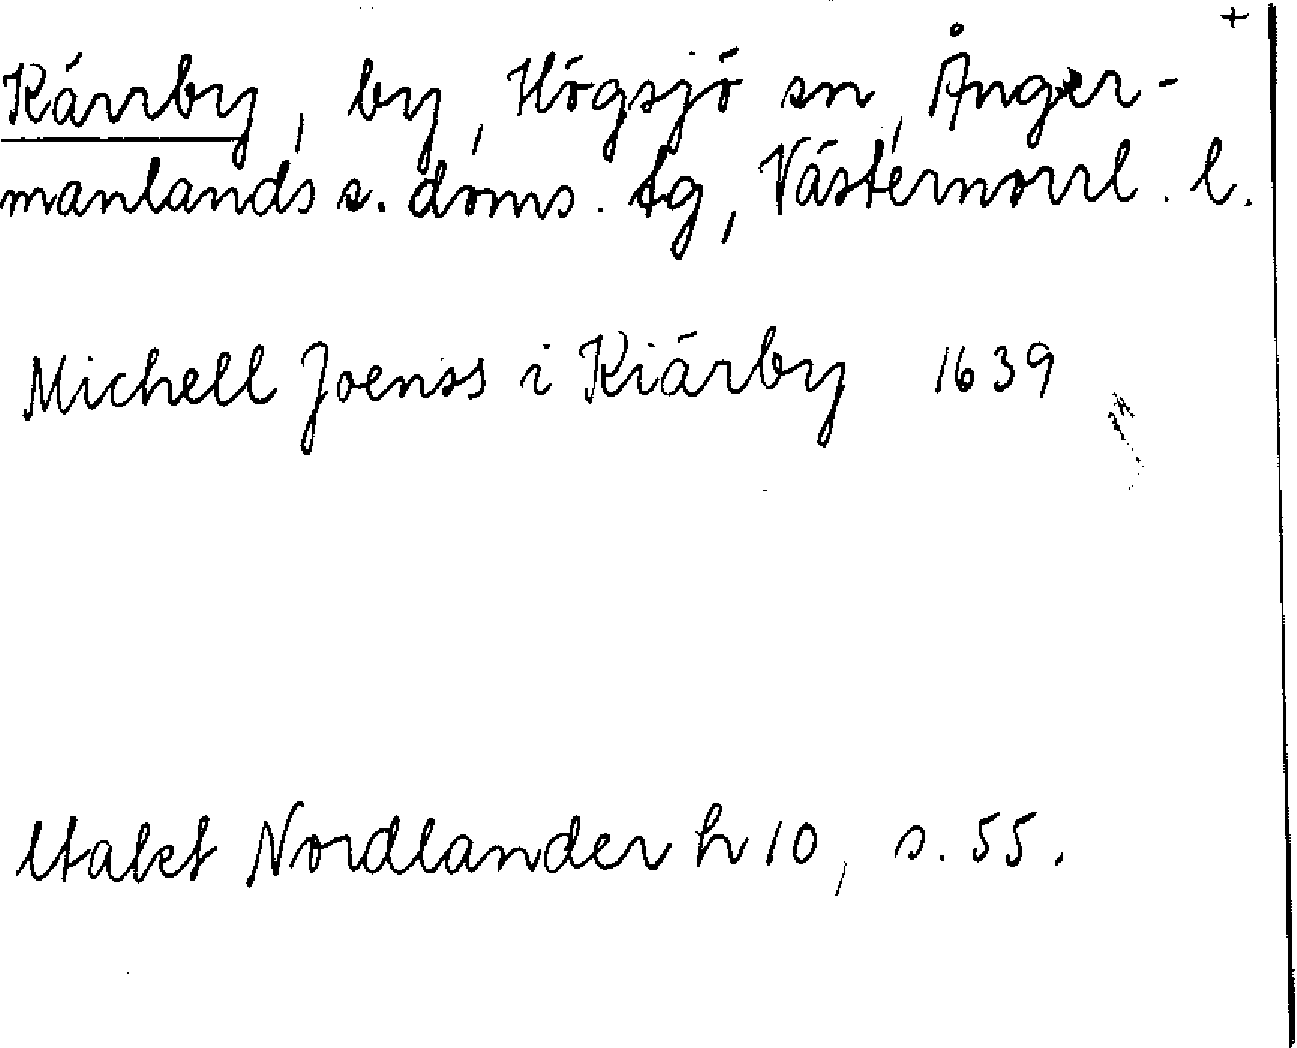 +
Kärrby, by, Högsjö sn, Ånger-
manlands s. doms. tg, Västernorrl. l.
Michell Joenss i Kiärby 1639
Utalet Nordlander h 10, s. 55.